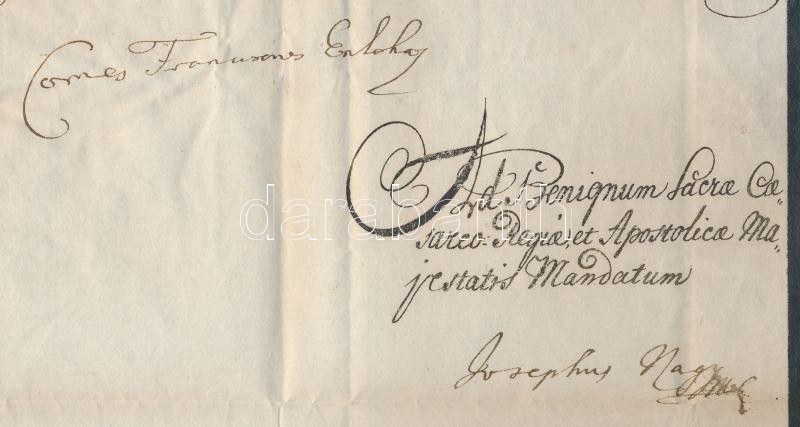 Comes Franciscus Eszterházy
Ad Benignum Sacræ Cæ„
sareo-Regiæ, et Apostolicæ Ma„
jestatis Mandatum
Josephus Nagy
darabanth